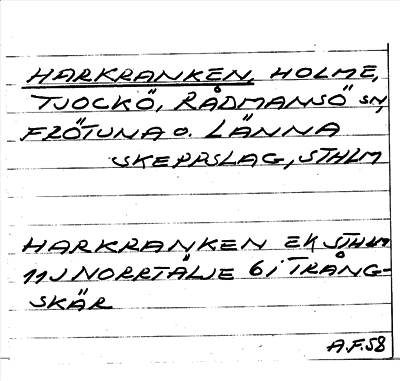 HARKRANKEN, HOLME,
TJOCKÖ, RÅDMANSÖ SN,
FRÖTUNA O. LÄNNA
SKEPPSLAG, STHLM
HARKRANKEN EK STHLM
11J NORRTÄLJE 6i TRÅNG-
SKÄR
A.F.58